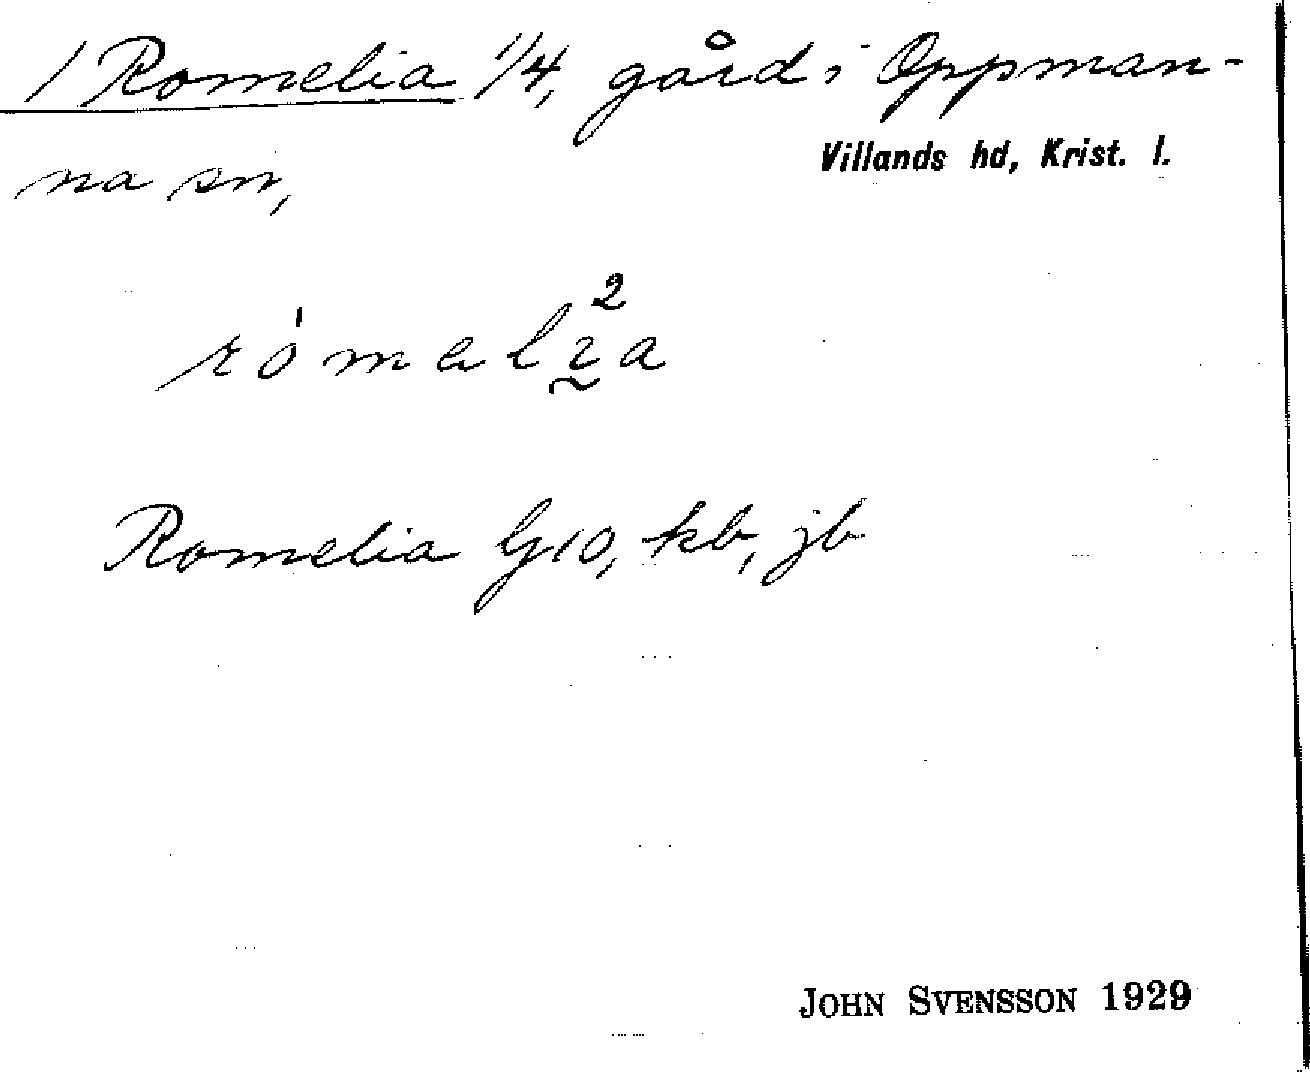 1 Romelia 1/4, gård i Oppman-
na sn,
Villands hd, Krist. l.
Romelia G10, kb, jb
JOHN SVENSSON 1929